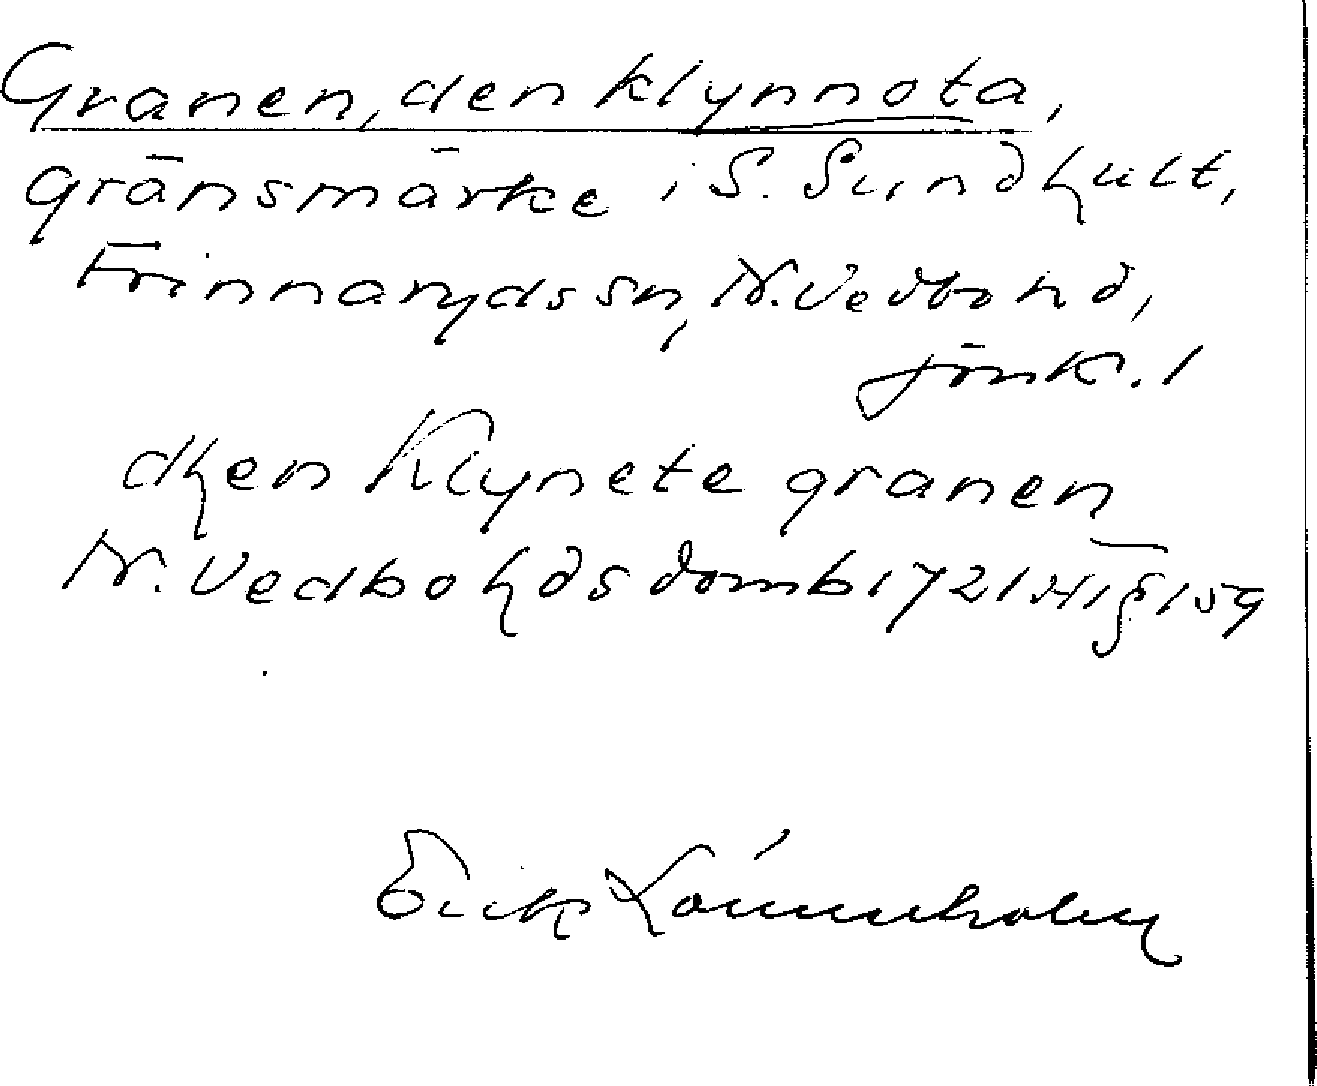 Granen, den klynnota,
gränsmärke i S. Sundhult,
Frinnaryds sn, N. Vedbo hd,
Jönk. l
dhen Klynete granen
N. Vedbo hds domb 1721 § 159
Erik Lönnholm